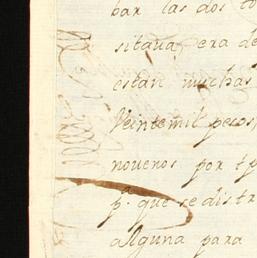 bar las dos
sitaua era de
estan muchas
Veinte mil pesos
novenos por tp
p.a que se distr
alguna para